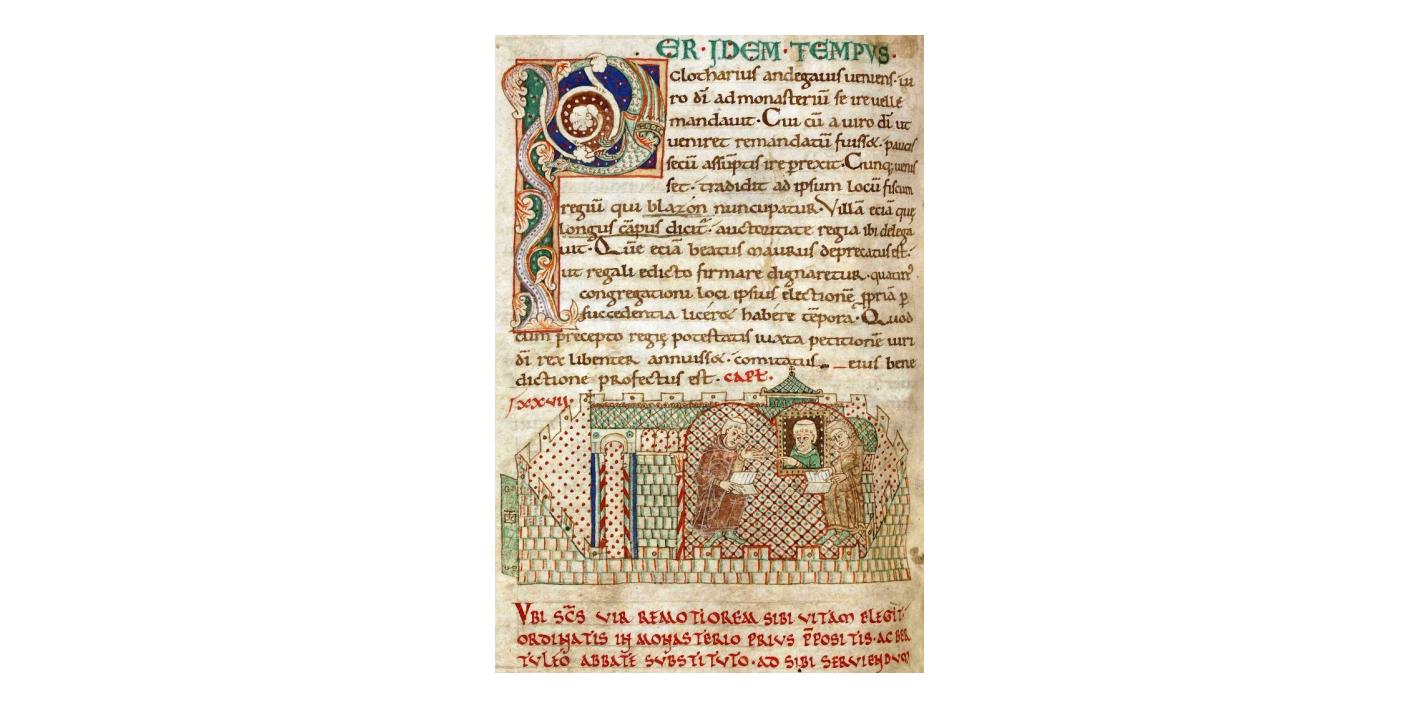 PER·IDEM·TEMPVS·
clotharius andegauis ueniens·ui
ro dī ad monasteriū se ire uelle
mandauit·Cui cū a uiro dī ut
ueniret remandatū fuisset·paucis
secū assūptis ire perrexit·Cunq; uenis
set·tradidit ad ipsum locū fiscum
regiū qui blazon nuncupatur·Villā eciā quę
longus cāpus dicit᷑·auctoritate regia ibi delega
uit·Quē eciā beatus maurus deprecatus est·
ut regali edicto firmare dignaretur·quatin᷒
congregationi loci ipsius electionē ꝓpriā ꝑ
succedentia liceret habere tēpora·Quod
cum precepto regię potestatis iuxta petitionē uiri
dī rex libenter annuisset·comitatus eius bene
dictione profectus est·CAPT·
lxxvii·
VBI SC̄S VIR REMOTIOREM SIBI VITAM ELEGIT·
ORDINATIS IN MONASTERIO PRIVS P̄POSITIS·AC BER
TVLFO ABBATE SVBSTITVTO·AD SIBI SERVIENDVM